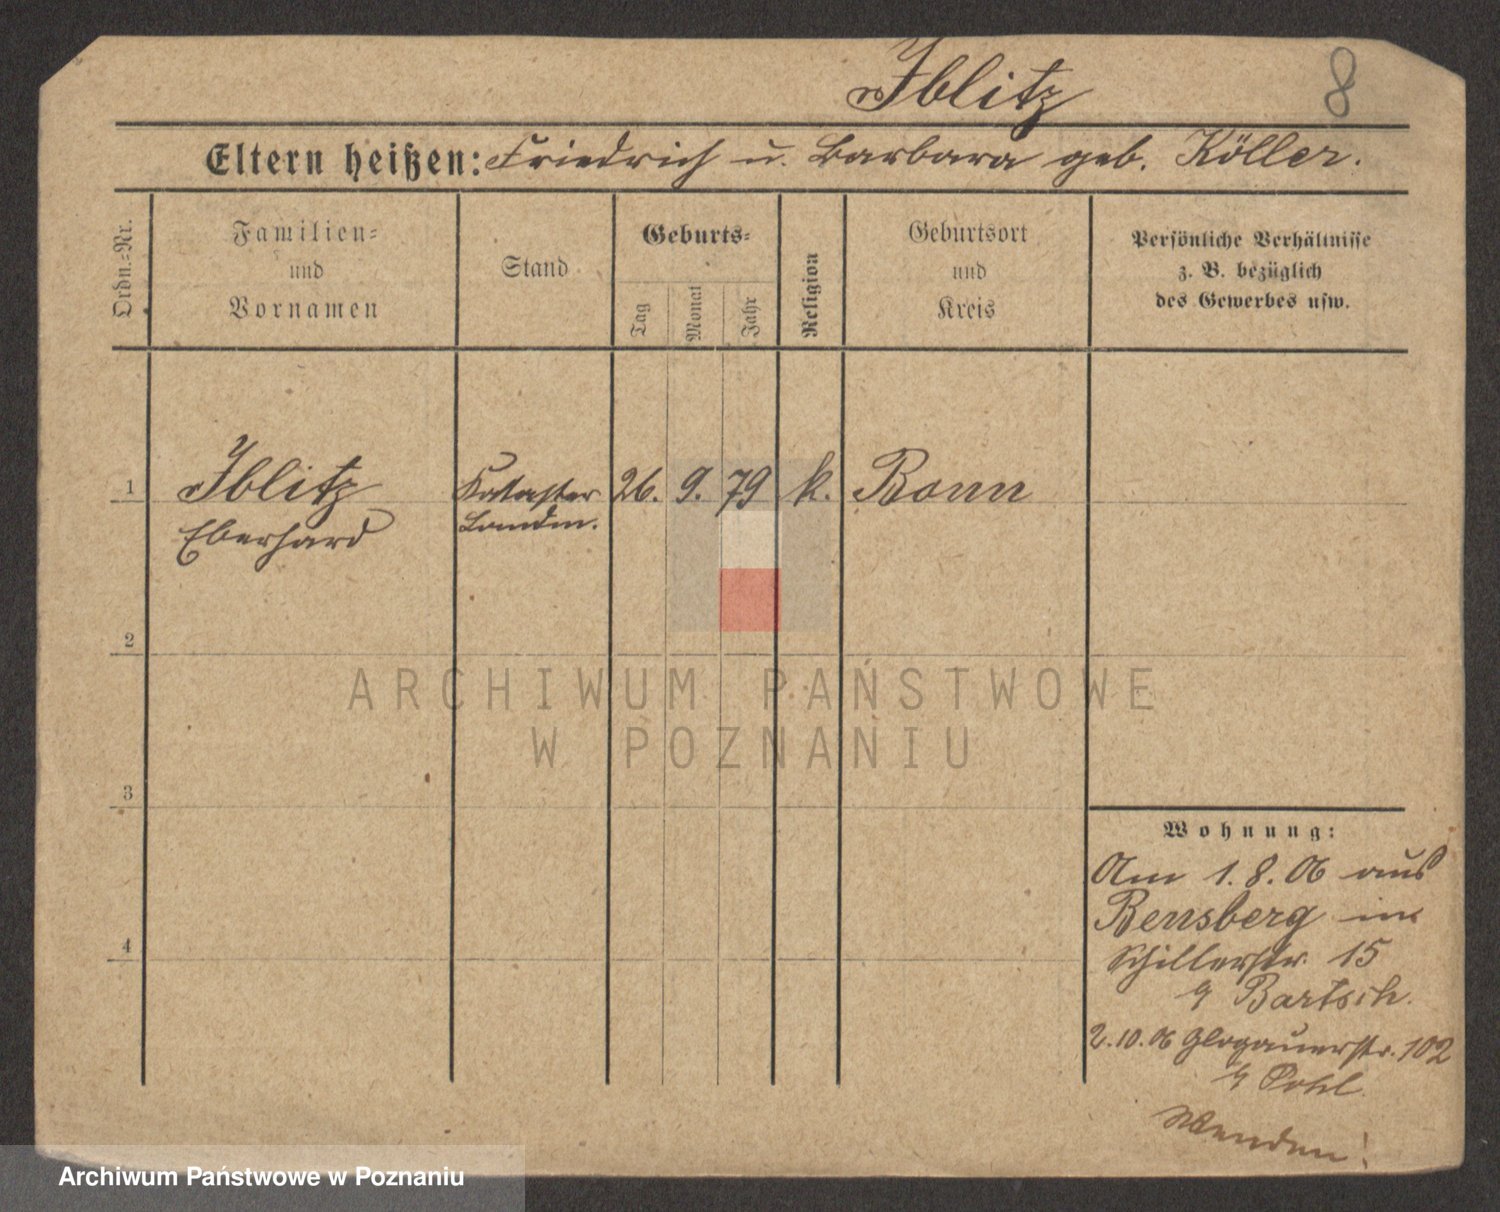 Iblitz
8
Eltern heißen: Friedrich u. Barbara geb. Köller.
Ordn.-Nr.
Familien-
und
Vornamen
Stand
Geburts-
Tag
Monat
Jahr
Religion
Geburtsort
und
Kreis
Persönliche Verhältnisse
z. B. bezüglich
des Gewerbes usw.
1 Iblitz Kataster 26. 9. 79 k. Bonn
Eberhard Landm.
2
3
4
Wohnung:
Am 1. 8. 06 aus
Bensberg in
Schillerstr. 15
Bartsch.
2. 10. 06 Glogauerstr. 102
Pohl
Wenden!
ARCHIWUM PAŃSTWOWE
W POZNANIU
Archiwum Państwowe w Poznaniu